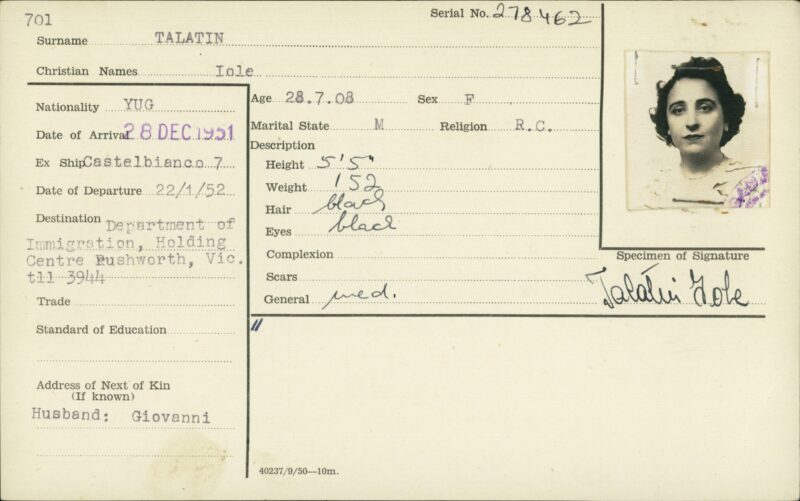 701
Serial No. 278462
Surname TALATIN
Christian Names Iole
Nationality YUG
Date of Arrival 28 DEC 1951
Ex Ship Castelbianco 7
Date of Departure 22/1/52
Destination Department of
Immigration, Holding
Centre Rushworth, Vic.
tll 3944
Trade
Standard of Education
Address of Next of Kin
(If known)
Husband: Giovanni
Age 28.7.08 Sex F
Marital State M Religion R.C.
Description
Height 5'5"
Weight 152
Hair black
Eyes black
Complexion
Scars
General med.
"
40237/9/50—10m.
Specimen of Signature
Talatin Iole